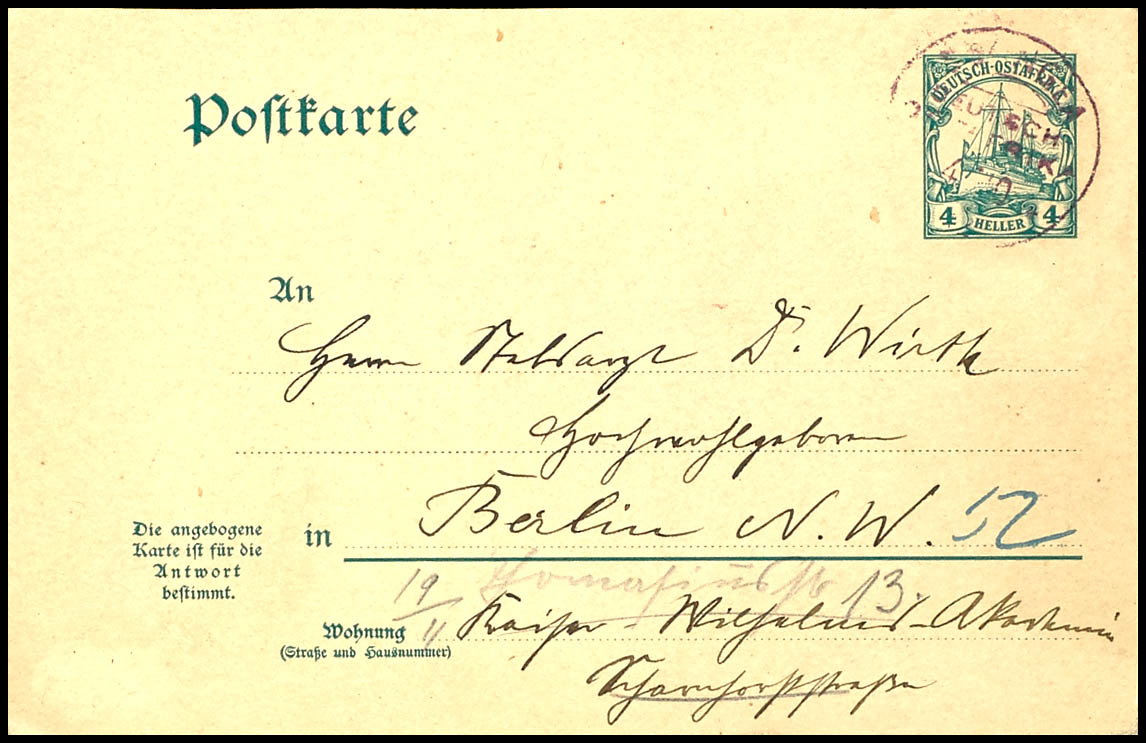 Postkarte
DEUTSCH-OSTAFRIKA
4 HELLER 4
An
Herrn Stabsarzt Dr. Wirth
Hochwohlgeboren
Die angebogene
Karte ist für die
Antwort
bestimmt.
in Berlin N. W. 52
19/11 Thomasiusstr 13.
Wohnung
(Straße und Hausnummer)
Kaiser Wilhelms-Akademie
Scharnhorststraße